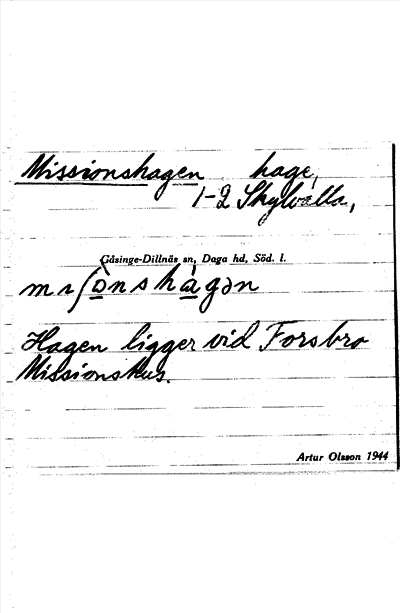 Missionshagen hage,
1-2 Skylvalla,
Gåsinge-Dillnäs sn, Daga hd, Söd. l.
mɪʃò̠nshà̠gən
Hagen ligger vid Forsbro
Missionshus.
Artur Olsson 1944